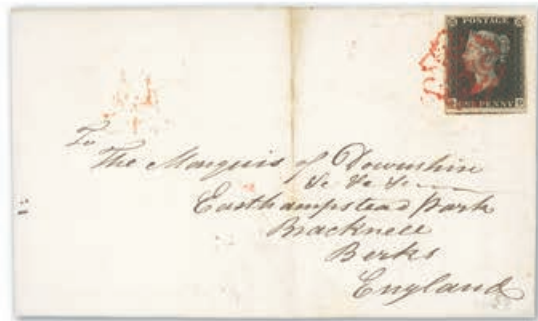 POSTAGE
ONE PENNY
To
The Marquis of Downshire
&c &c &c
Easthampstead Park
Bracknell
Berks
England